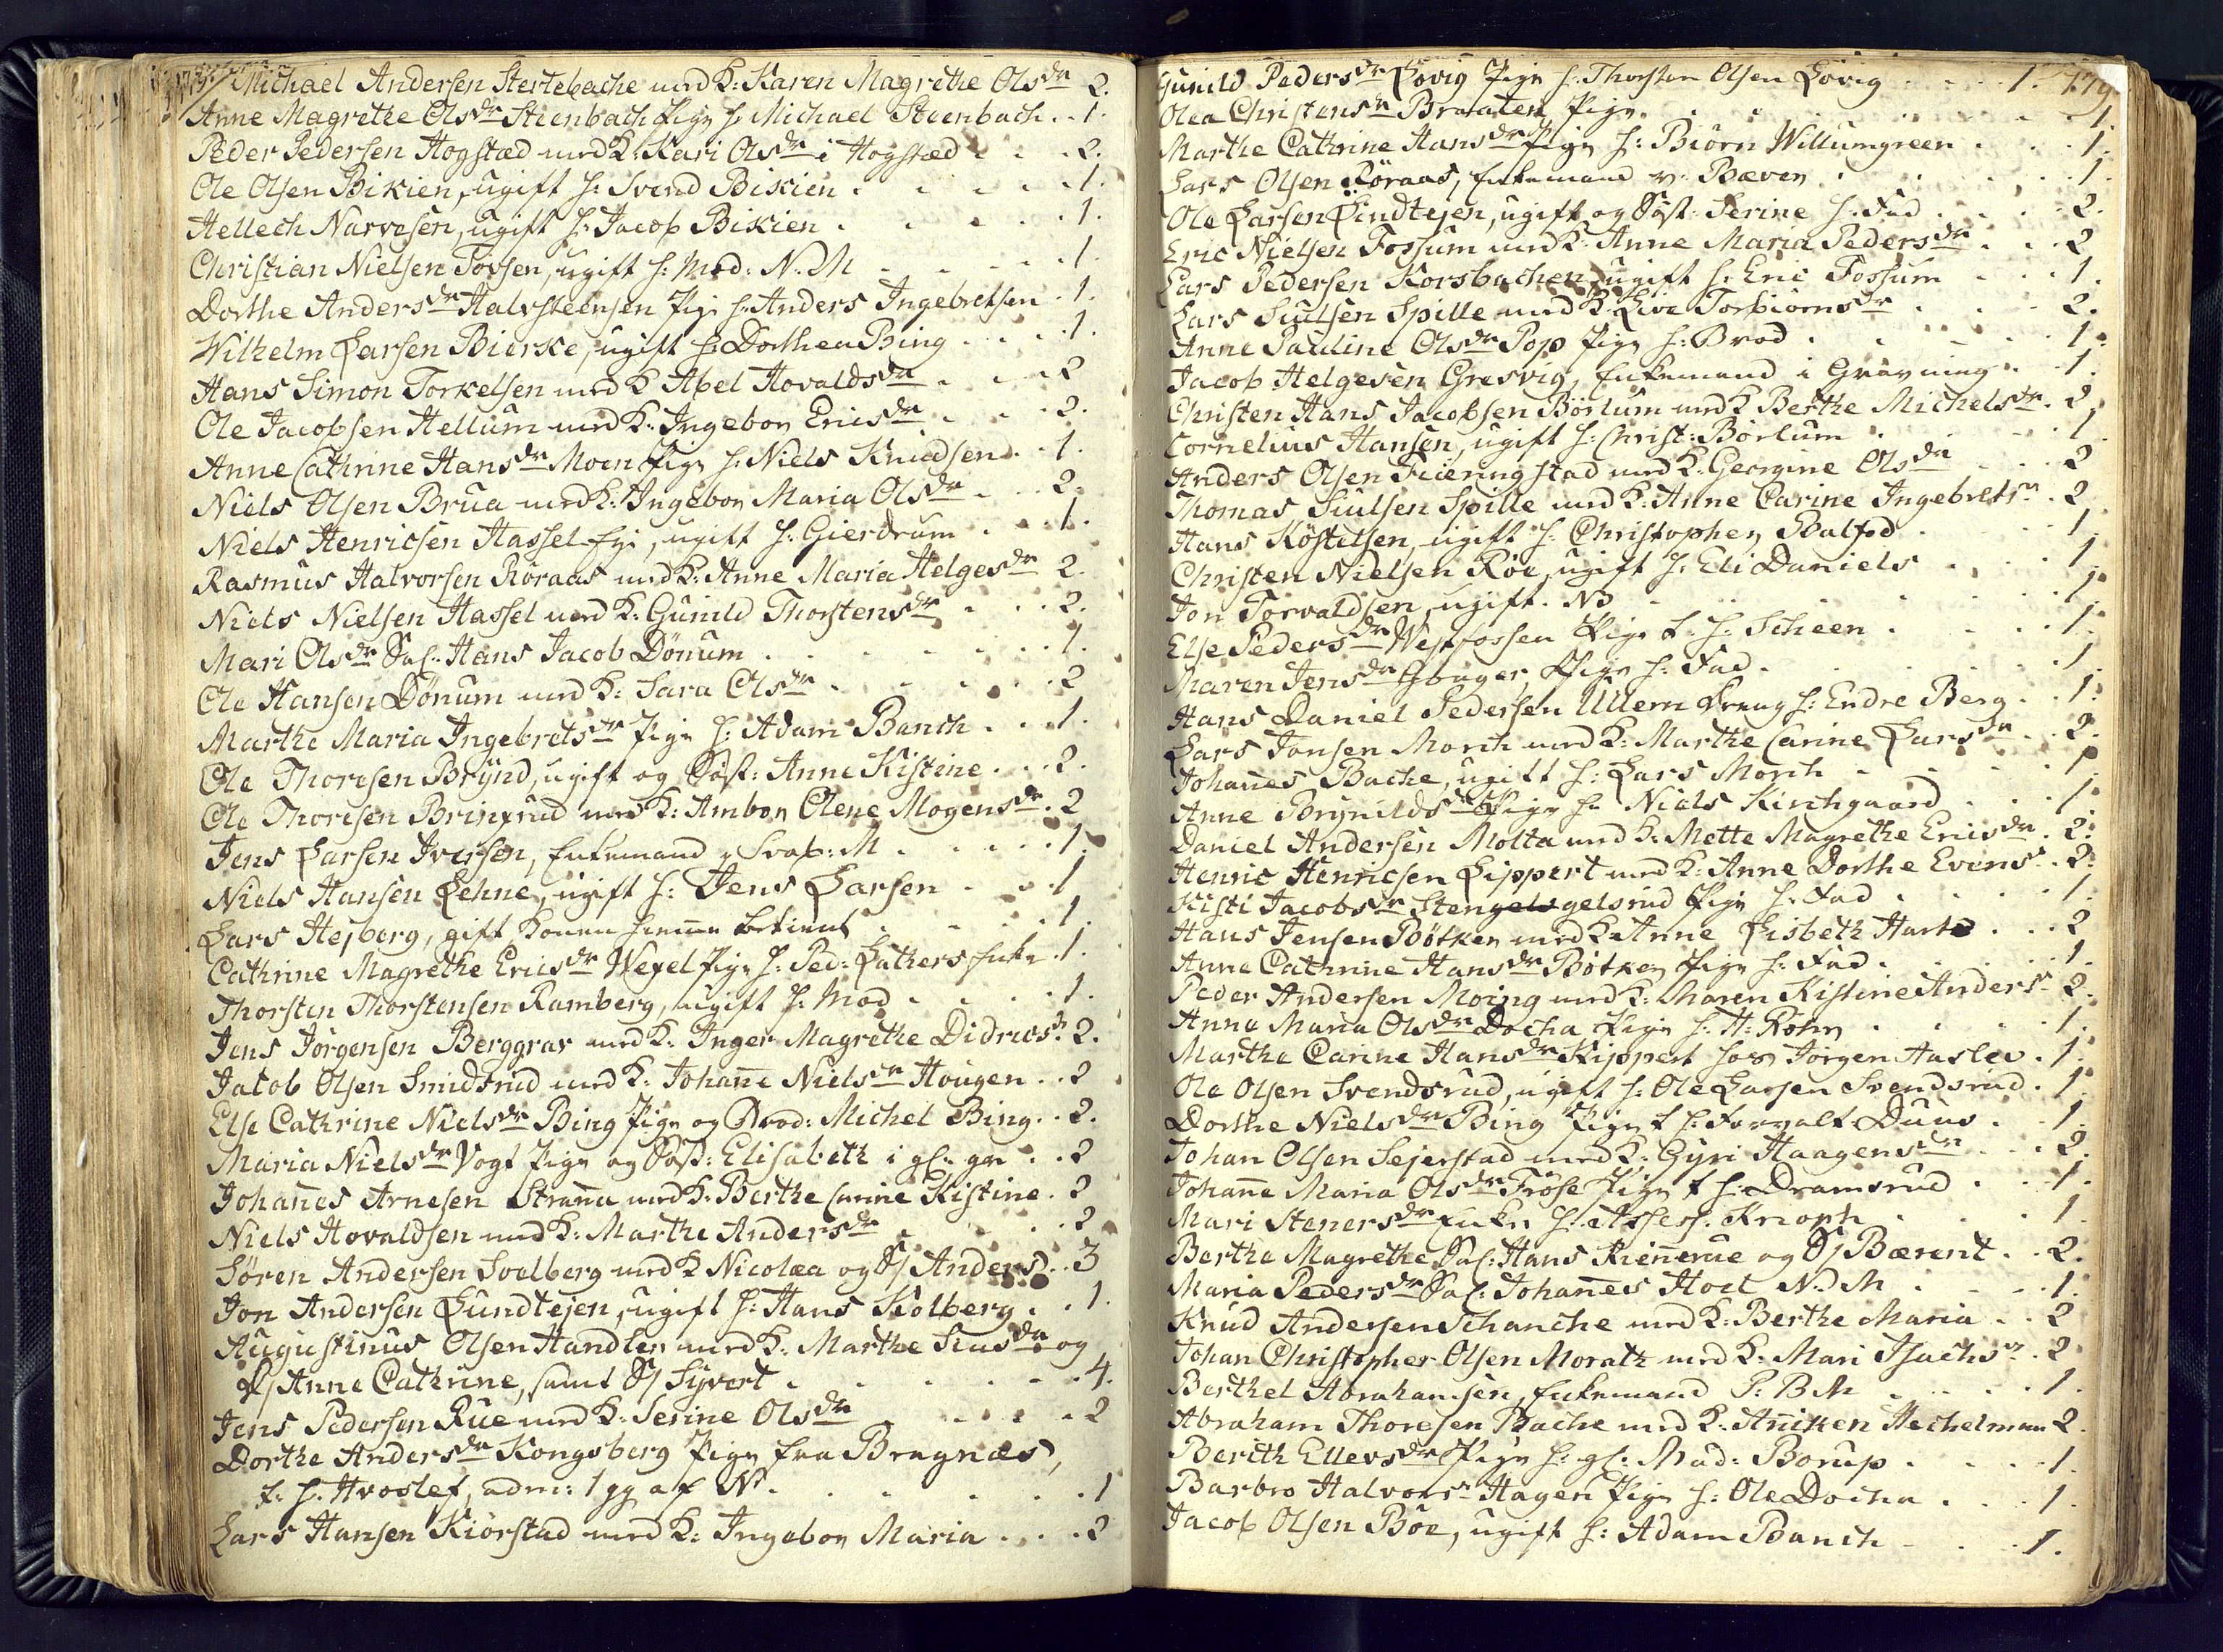 Michael Andersen Stertebache med K: Karen Magrethe Olsdr 2.
Anne Magrethe Olsdr Steenbach Pige h: Michael Steenbach . . 1.
Peder Pedersen Hogstæd med K: Kari Olsdr i Hogstæd . . . 2.
Ole Olsen Bikien, ugift h: Svend Bikien . . . . . 1.
Hellech Narvesen, ugift h: Jacob Bikien . . . . 1.
Christian Nielsen Fossen, ugift h: Mod: N. M . . . . 1.
Dorthe Andersdr Halvsteensen Pige h: Anders Ingebretsen . 1.
Wilhelm Larsen Bierke, ugift h: Dorthea Bing . . . . 1.
Hans Simon Torkelsen med K Abel Hovaldsdr . . . 2
Ole Jacobsen Hellum med K: Ingebor Ericsdr . . . 2.
Anne Cathrine Hansdr Moen Pige h: Niels Knudsen . . 1.
Niels Olsen Brua med K: Ingebor Maria Olsdr . . . 2.
Niels Henricsen Hassel-Eye, ugift h: Gierdrum . . . 1.
Rasmus Halvorsen Röraas med K: Anne Maria Helgesdr 2.
Niels Nielsen Hassel med K: Gunild Thorstensdr . . . 2.
Mari Olsdr Sal: Hans Jacob Dönum . . . . . . . 1.
Ole Hansen Dönum med K: Sara Olsdr . . . . . 2
Marthe Maria Ingebretsdr Pige h: Adam Banch . . . 1.
Ole Thoresen Brÿnd, ugift og Söst: Anne Kistine . . . 2.
Ole Thoresen Bringrud med K: Ambor Olene Mogensdr . 2
Jens Larsen Iversen, Enkemand Svab: M . . . . . 1.
Niels Hansen Lehne, ugift h: Jens Larsen . . . 1
Lars Hejberg, gift Konen hiemme betient . . . . 1.
Cathrine Magrethe Ericsdr Wefel Pige h: Ped: Luthers Enke . 1.
Thorsten Thorstensen Ramberg, ugift h: Mod . . . . . 1.
Jens Jörgensen Berggrav med K: Inger Magrethe Didricsdr . 2.
Jacob Olsen Smidsrud med K: Johañe Nielsdr Hougen . . 2
Else Cathrine Nielsdr Bing Pige og Brod: Michel Bing . . 2.
Maria Nielsdr Vogt Pige og Söst: Elisabeth i gl: gr . . 2
Johañes Arnesen Straña med K: Berthe Carine Kistine . 2
Niels Hovaldsen med K: Marthe Andersdr . . . . . 2
Sören Andersen Soelberg med K Nicolæa og S/ Anders . . 3
Jon Andersen Lundtejen, ugift h: Hans Kolberg . . 1.
Augustinus Olsen Handler med K: Marthe Siusdr og
D/ Anne Cathrine, samt S/ Syvert . . . . . . . 4.
Jens Pedersen Rue med K: Serine Olsdr . . . . 2
Dorthe Andersdr Kongsberg Pige fra Bragnæs,
t. h: Hvoslef, adm: 1 gg af N . . . . . . . 1
Lars Hansen Kiörstad med K: Ingebor Maria . . . . 2
Gunild Pedersdr Lövig Pige h: Thorsten Olsen Lövig . . . . 1.
Olea Christensdr Braaten, Pige . . . . . . . . 1.
Marthe Cathrine Hansdr Pige h: Biörn Willumgreen . . . 1.
Lars Olsen Röraas, Enkemand v: Bæven . . . . . . 1.
Ole Larsen Lindtejen, ugift og Söst: Serine h: Fad . . . . 2.
Eric Nielsen Fossum med K: Anne Maria Pedersdr . . . 2
Lars Pedersen Korsbachen, ugift h: Eric Fossum . . . 1.
Lars Siulsen Spille med K: Live Torbiörnsdr . . . . 2.
Anne Pauline Olsdr Pop Pige h: Brod . . . . . . 1.
Jacob Helgesen Gresvig, Enkemand i Gravning . . 1.
Christen Hans Jacobsen Börlum med K Berthe Michelsdr . 2
Cornelius Hansen, ugift h: Christ: Börlum . . . . 1.
Anders Olsen Fieringstad med K: Georgine Olsdr . . . 2
Thomas Siulsen Spille med K: Anne Carine Ingebretsdr . 2
Hans Köstelsen, ugift h: Christopher Balfod . . . 1.
Christen Nielsen Röe, ugift h: Eli Daniels . . . . 1.
Jon Torvaldsen, ugift. NB . . . . . . . . 1.
Else Pedersdr Westfossen Pige t. h: Scheen . . . . 1.
Maren Jensdr Gbager, Pige h: Fad . . . . . . 1
Hans Daniel Pedersen Ullern Dreng h: Endre Berg . . 1.
Lars Jonsen Morch med K: Marthe Carine Larsdr . . 2.
Johañes Bache, ugift h: Lars Morch . . . . . 1
Anne Brynildsdr Pige h: Niels Kirchgaard . . . 1.
Daniel Andersen Molta med K: Mette Magrethe Ericsdr . 2.
Henric Henricsen Lippert med K: Anne Dorthe Evensdr . 2.
Kisti Jacobsdr Stengelsgelsrud Pige h: Fad . . . . 1.
Hans Jensen Bötker med K: Anne Lisbeth Harts . . . 2
Anne Cathrine Hansdr Bötker Pige h: Fad . . . . . 1.
Peder Andersen Moing med K: Maren Kistine Andersdr 2.
Anne Maria Olsdr Docka Pige h: H: Röhn . . . . . 1.
Marthe Carine Hansdr Kippert hos Jörgen Haslev . 1.
Ole Olsen Svendsrud, ugift h: Ole Larsen Svendsrud . 1.
Dorthe Nielsdr Bing Pige t h: Forvalt Duus . . 1.
Johan Olsen Sejerstad med K: Gyri Haagensdr . . . 2.
Johañe Maria Olsdr Fröse Pige t h: Dramsrud . . . 1.
Mari Stenersdr Enke h: Assess: Knoph . . . . . 1.
Berthe Magrethe Sal: Hans Rieñerue og S/ Bærent . . 2.
Maria Pedersdr Sal: Johañes Hoel N: M . . . . 1.
Knud Andersen Schanche med K: Berthe Maria . . 2
Johan Christopher Olsen Morath med K: Mari Isachsdr . 2
Berthel Abrahamsen, Enkemand P: B M . . . . . 1.
Abraham Thoresen Bache med K: Añiken Hechelman 2.
Berith Ellevsdr Pige h: gl: Mad: Borup . . . . . 1.
Barbro Halvorsdr Hagen Pige h: Ole Docka . . . 1
Jacob Olsen Böe, ugift h: Adam Banch . . . . 1.